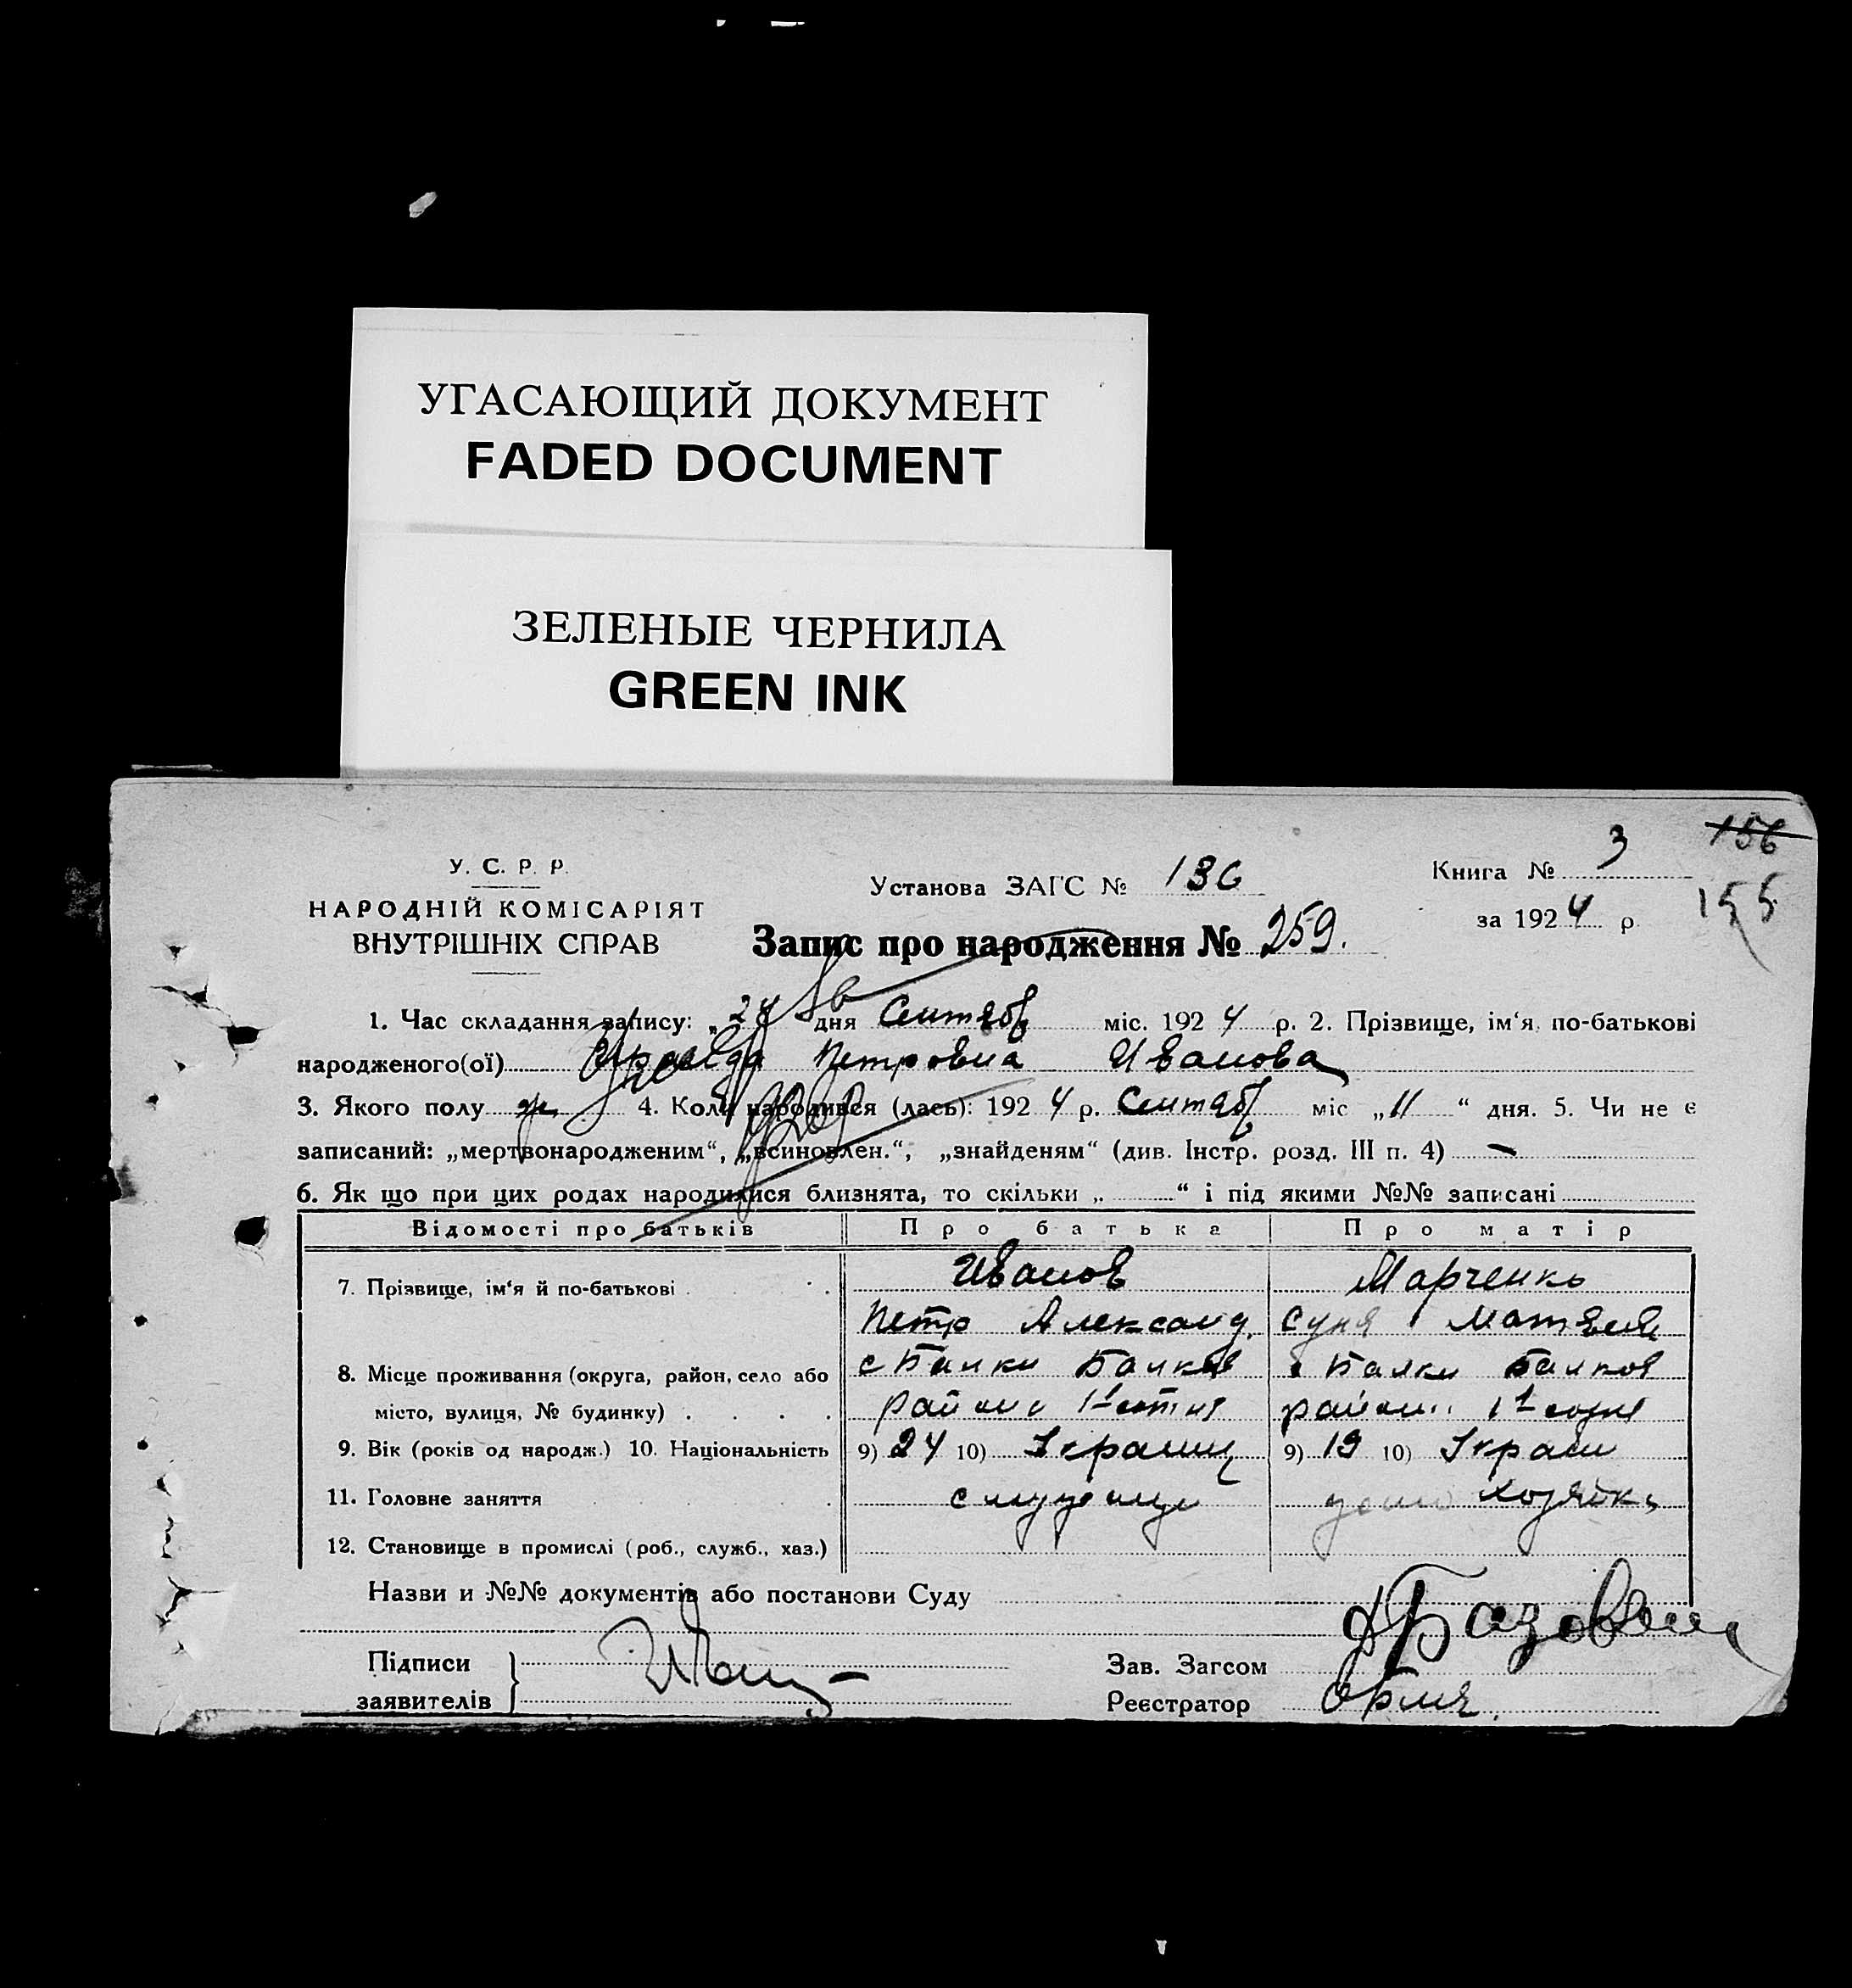 УГАСАЮЩИЙ ДОКУМЕНТ
FADED DOCUMENT
ЗЕЛЕНЫЕ ЧЕРНИЛА
GREEN INK
156
155
У. С. Р. Р.
НАРОДНІЙ КОМІСАРІЯТ
ВНУТРІШНІХ СПРАВ
Установа ЗАГС № 136
Книга № 3
за 1924 р.
Запис про народження № 259.
1. Час складання запису: „24 дня Сентяб міс. 1924 р. 2. Прізвище, ім‘я, по-батькові
народженого(ої) Петровна Иванова
3. Якого полу ж 4. Коли народився (лась): 1924 р. Сентяб міс „11“ дня. 5. Чи не є
записаний: „мертвонародженим“, „всиновлен.“, „знайденям“ (див. Інстр. розд. III п. 4) —
6. Як що при цих родах народилися близнята, то скільки „ “ і під якими №№ записані
Відомості про батьків Про батька Про матір
7. Прізвище, ім‘я й по-батькові Иванов Марченко
Петр Александ. Суня Матвеев
8. Місце проживання (округа, район, село або с Балки Балков Балки Балков
місто, вулиця, № будинку) района 1 сотня района 1 сотня
9. Вік (років од народж.) 10. Національність 9) 24 10) Украинц 9) 19 10) Украин
11. Головне заняття служащи дом хозяйка
12. Становище в промислі (роб., служб., хаз.)
Назви и №№ документів або постанови Суду
Підписи
заявителів
Зав. Загсом
Реєстратор